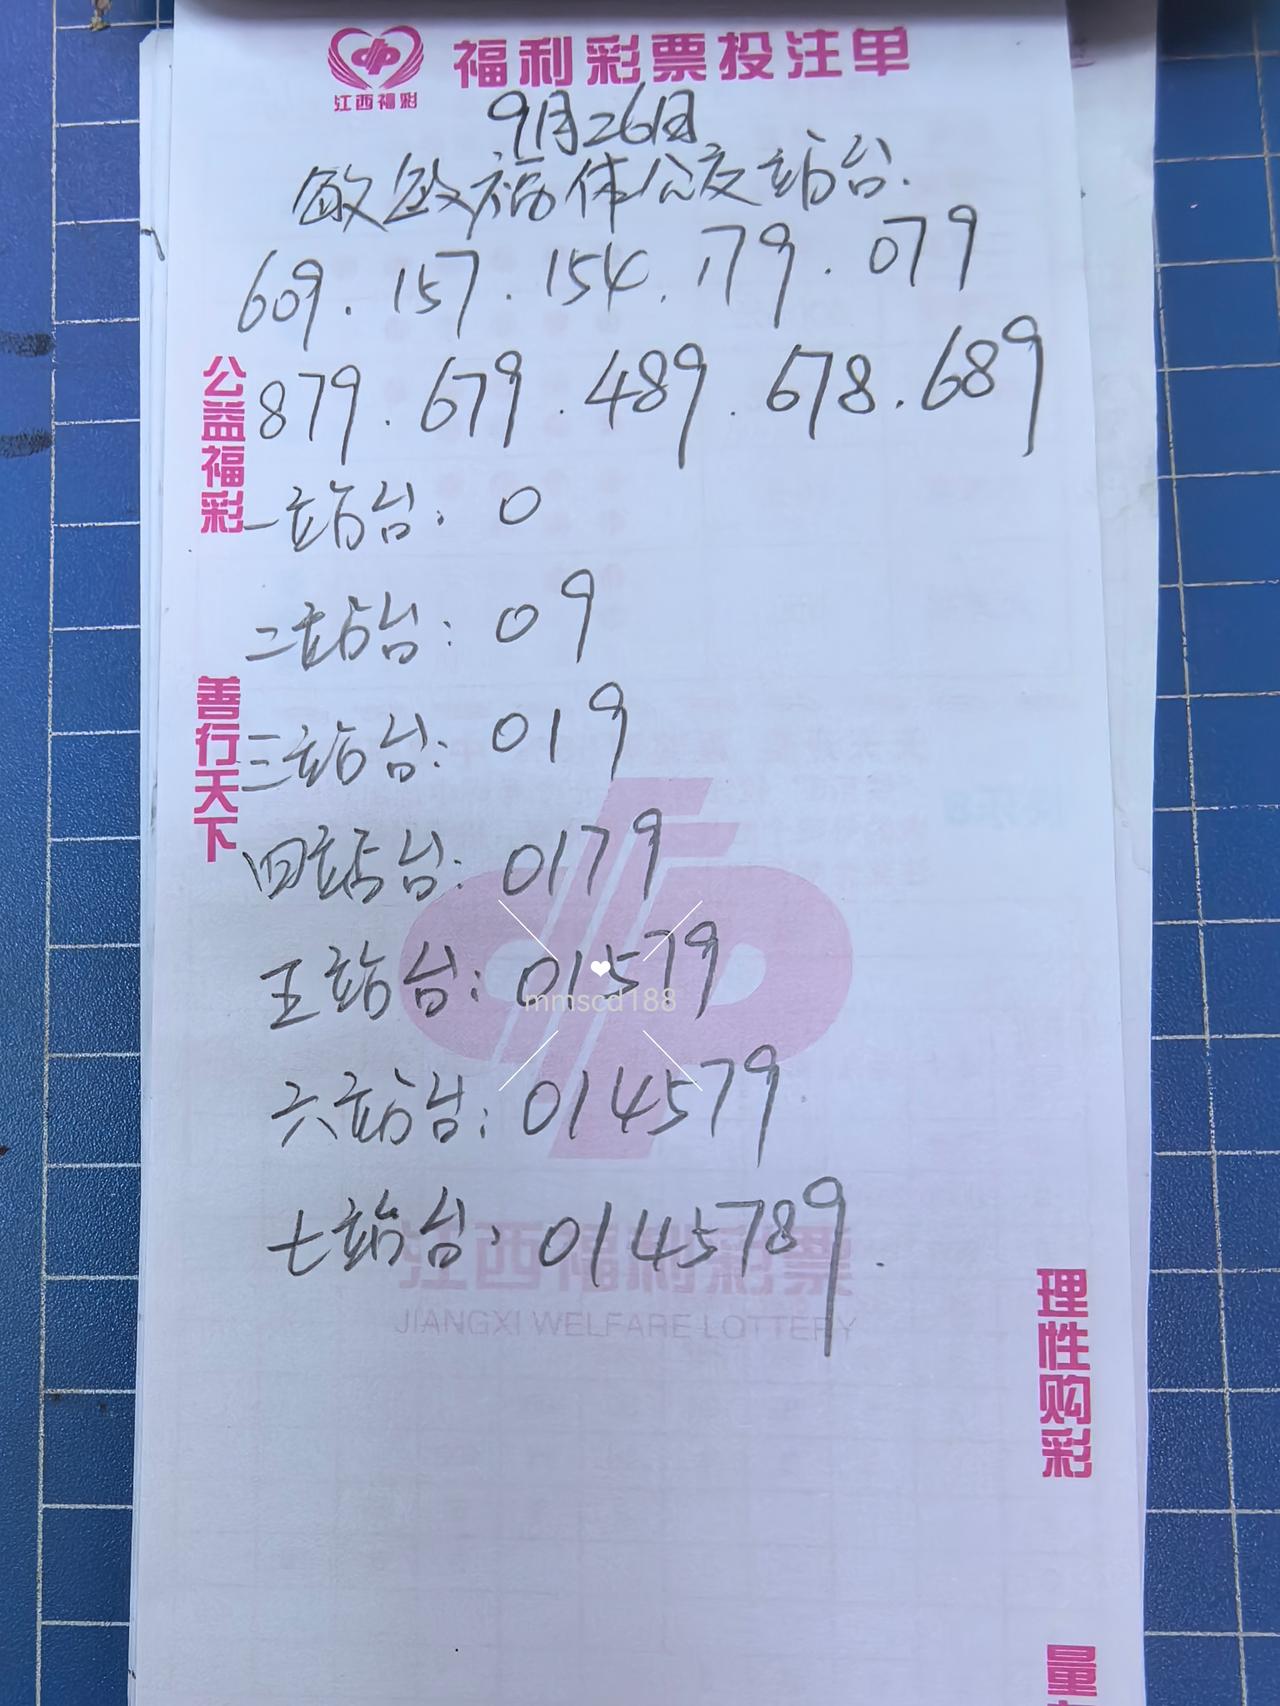 江西福彩 福利彩票投注单
9月26日
敏敏福体公交站台.
609.157.154.179.079
879.679.489.678.689
公益福彩
一站台:0
二站台:09
三站台:019
善行天下
四站台:0179
五站台:01579
mmscd188
六站台:014579
七站台:0145789.
江西福利彩票
JIANGXI WELFARE LOTTERY
理性购彩
量